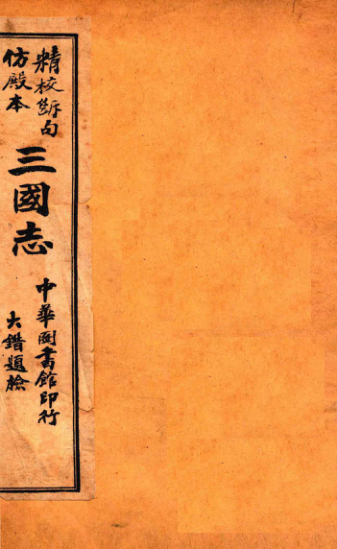 精校断句
仿殿本
三國志
中華圖書館印行
大錯題檢